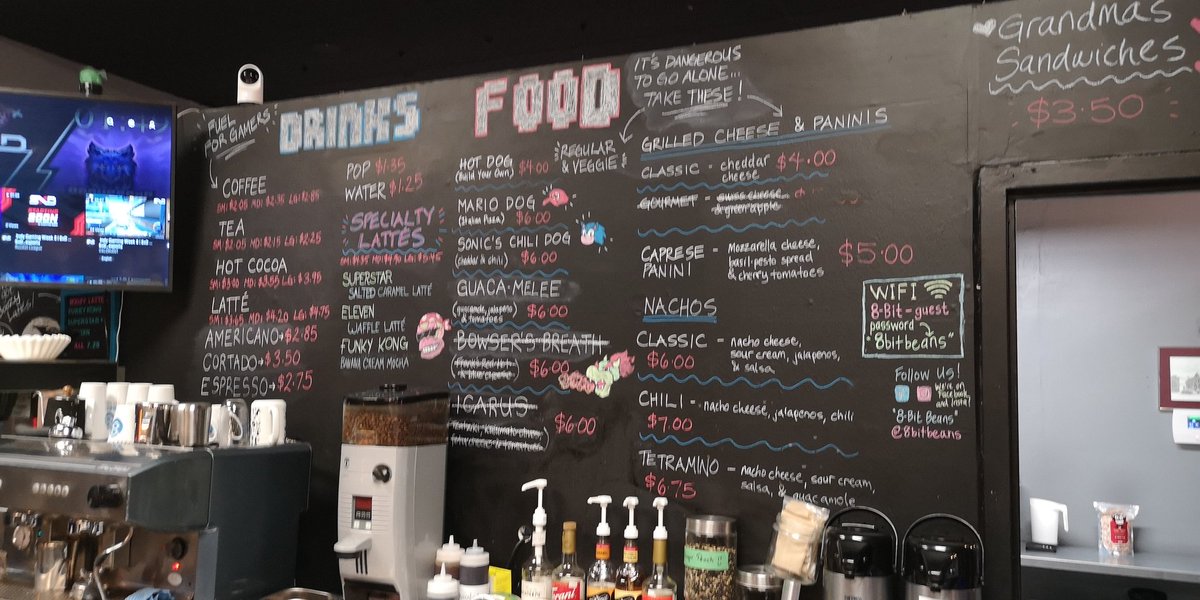 FUEL
FOR GAMERS
DRINKS
COFFEE
SM: $2.05 MD: $2.35 LG: $2.85
TEA
SM: $2.05 MD: $2.15 LG: $2.25
HOT COCOA
SM: $3.00 MD: $3.55 LG: $3.95
LATTÉ
SM: $3.65 MD: $4.20 LG: $4.75
AMERICANO $2.85
CORTADO $3.50
ESPRESSO $2.75
POP $1.35
WATER $1.25
SPECIALTY
LATTÉS
SUPERSTAR
SALTED CARAMEL LATTÉ
ELEVEN
WAFFLE LATTÉ
FUNKY KONG
BANANA CREAM MOCHA
FOOD
REGULAR
& VEGGIE
HOT DOG $4.00
(Build Your Own)
MARIO DOG
(Italian Pizza) $6.00
SONIC'S CHILI DOG
(cheddar & chili) $6.00
GUACA-MELEE
(guacamole, jalapeno
& tomatoes) $6.00
BOWSER'S BREATH
$6.00
ICARUS
$6.00
IT'S DANGEROUS
TO GO ALONE...
TAKE THESE!
GRILLED CHEESE & PANINIS
CLASSIC - cheddar $4.00
cheese
GOURMET - swiss cheese
& green apple
CAPRESE - Mozzarella cheese, $5.00
PANINI basil-pesto spread
& cherry tomatoes
NACHOS
CLASSIC - nacho cheese,
$6.00 sour cream, jalapenos,
& salsa
CHILI - nacho cheese, jalapenos, chili
$7.00
TETRAMINO - nacho cheese, sour cream,
$6.75 salsa, & guacamole
Grandmas
Sandwiches
$3.50
WIFI
8-Bit-guest
password
"8bitbeans"
Follow Us!
We're on
Facebook
and Insta!
"8-Bit Beans"
@8bitbeans